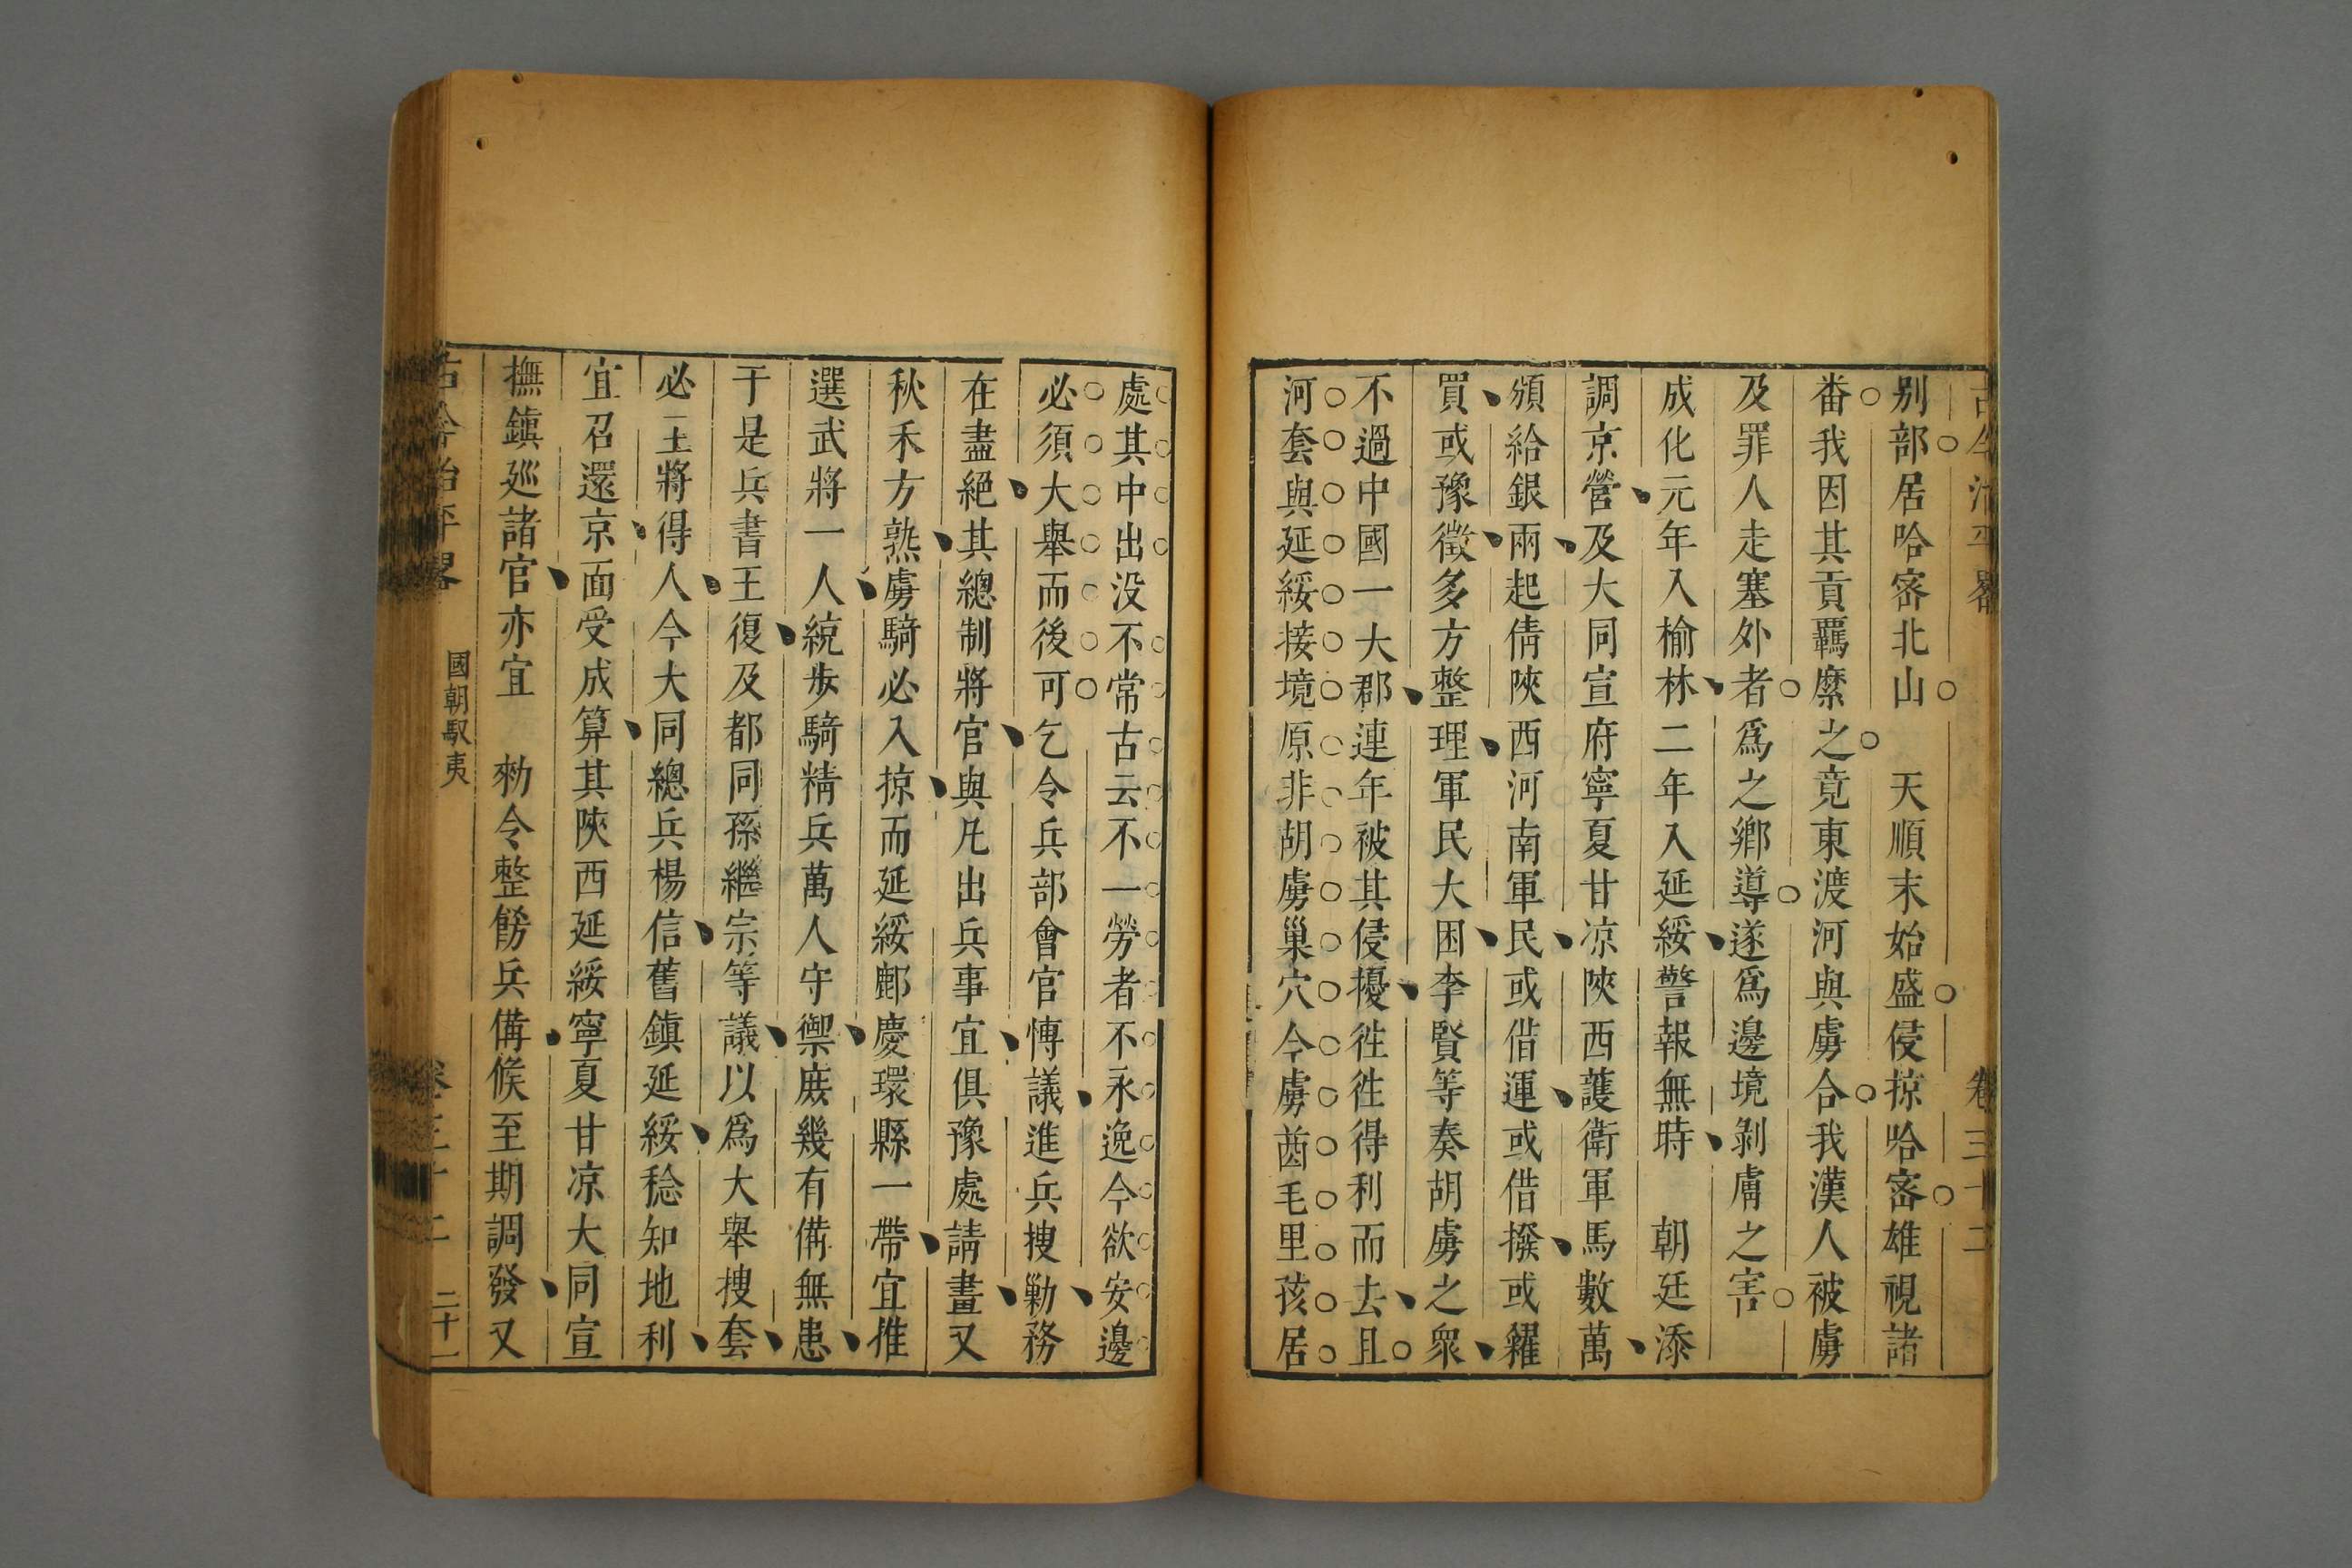 古今治平畧 卷三十二
别部居哈密北山 天順末始盛侵掠哈密雄視諸
畨我因其貢羈縻之竟東渡河與虜合我漢人被虜
及罪人走塞外者爲之鄉導遂爲邊境剥膚之害
成化元年入榆林二年入延綏警報無時 朝廷添
調京營及大同宣府寧夏甘凉陜西護衛軍馬數萬
頒給銀兩起倩陜西河南軍民或偕運或借撥或糴
買或豫徵多方整理軍民大困李賢等奏胡虜之衆
不過中國一大郡連年被其侵擾徃徃得利而去且
河套與延綏接境原非胡虜巢穴今虜酋毛里孩居
處其中出没不常古云不一勞者不永逸今欲安邊
必須大舉而後可乞令兵部會官慱議進兵搜勦務
在盡絕其總制將官與凡出兵事宜俱豫處請畫又
秋禾方熟虜騎必入掠而延綏鄜慶環縣一帶宜推
選武將一人統步騎精兵萬人守禦庶幾有備無患
于是兵書王復及都同孫繼宗等議以爲大舉搜套
必主將得人今大同總兵楊信舊鎮延綏稔知地利
宜召還京面受成算其陜西延綏寧夏甘凉大同宣
撫鎮廵諸官亦宜 勑令整餙兵備候至期調發又
古今治平畧 國朝馭夷 卷三十二 二十一